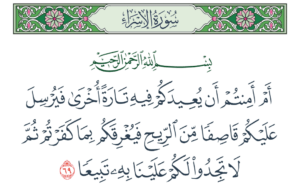 سُورَةُ الإِسْرَاء
بِسْمِ ٱللَّهِ ٱلرَّحْمَٰنِ ٱلرَّحِيمِ
أَمْ أَمِنتُمْ أَن يُعِيدَكُمْ فِيهِ تَارَةً أُخْرَىٰ فَيُرْسِلَ
عَلَيْكُمْ قَاصِفًا مِّنَ ٱلرِّيحِ فَيُغْرِقَكُم بِمَا كَفَرْتُمْ ثُمَّ
لَا تَجِدُوا۟ لَكُمْ عَلَيْنَا بِهِۦ تَبِيعًا ٦٩